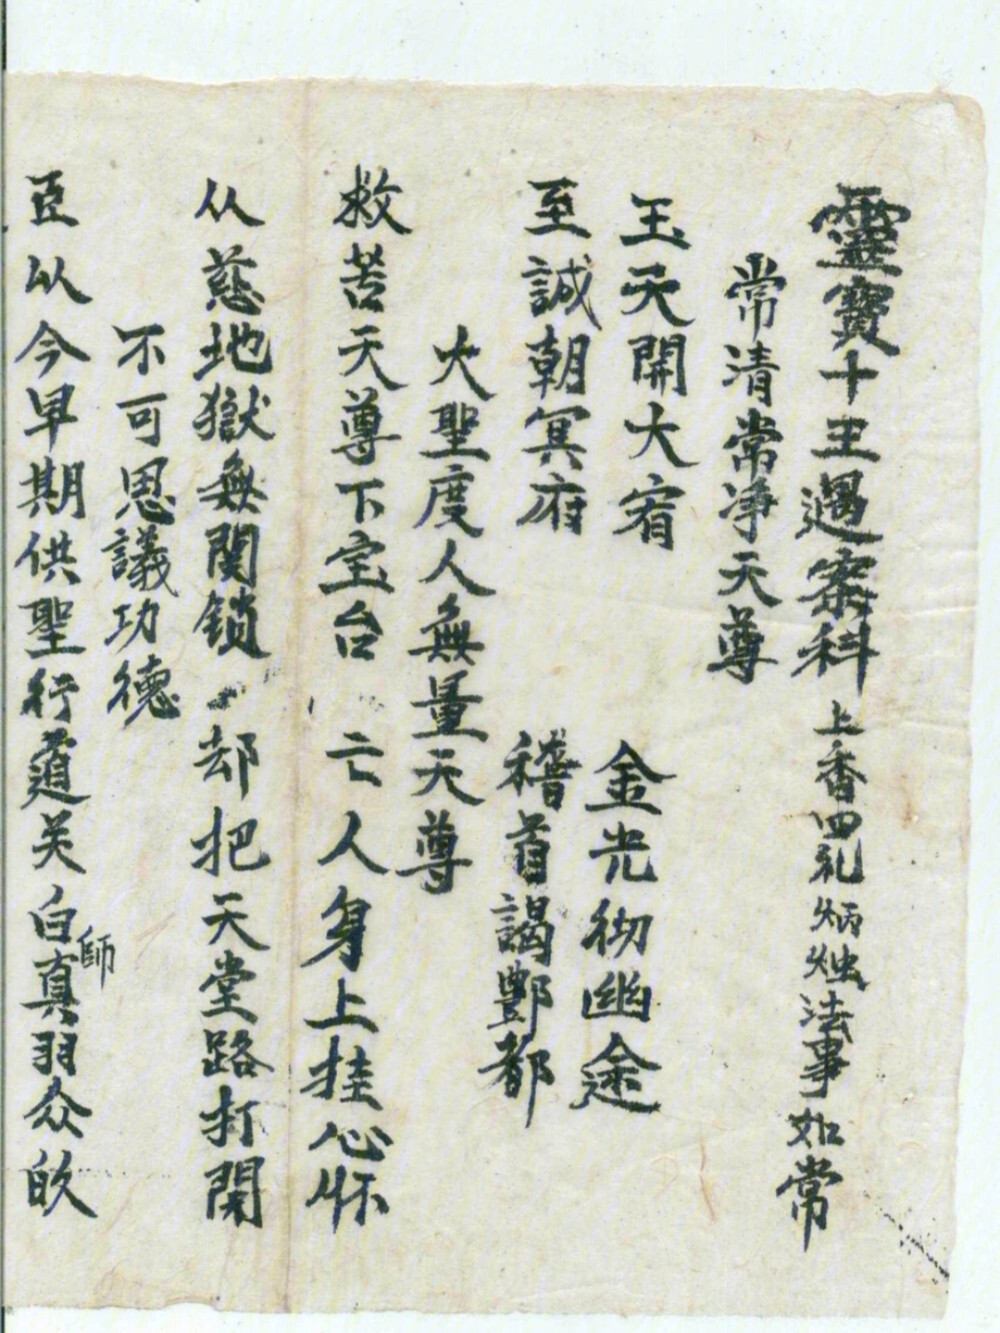 靈寶十王過案科 上香四礼炳烛法事如常
常清常净天尊
玉天開大宥 金光彻幽途
至誠朝冥府 稽首謁酆都
大聖度人無量天尊
救苦天尊下宝台 亡人身上挂心怀
从慈地獄無関鎖 却把天堂路打開
不可思議功德
臣以今早期供聖行道关白真师羽众的